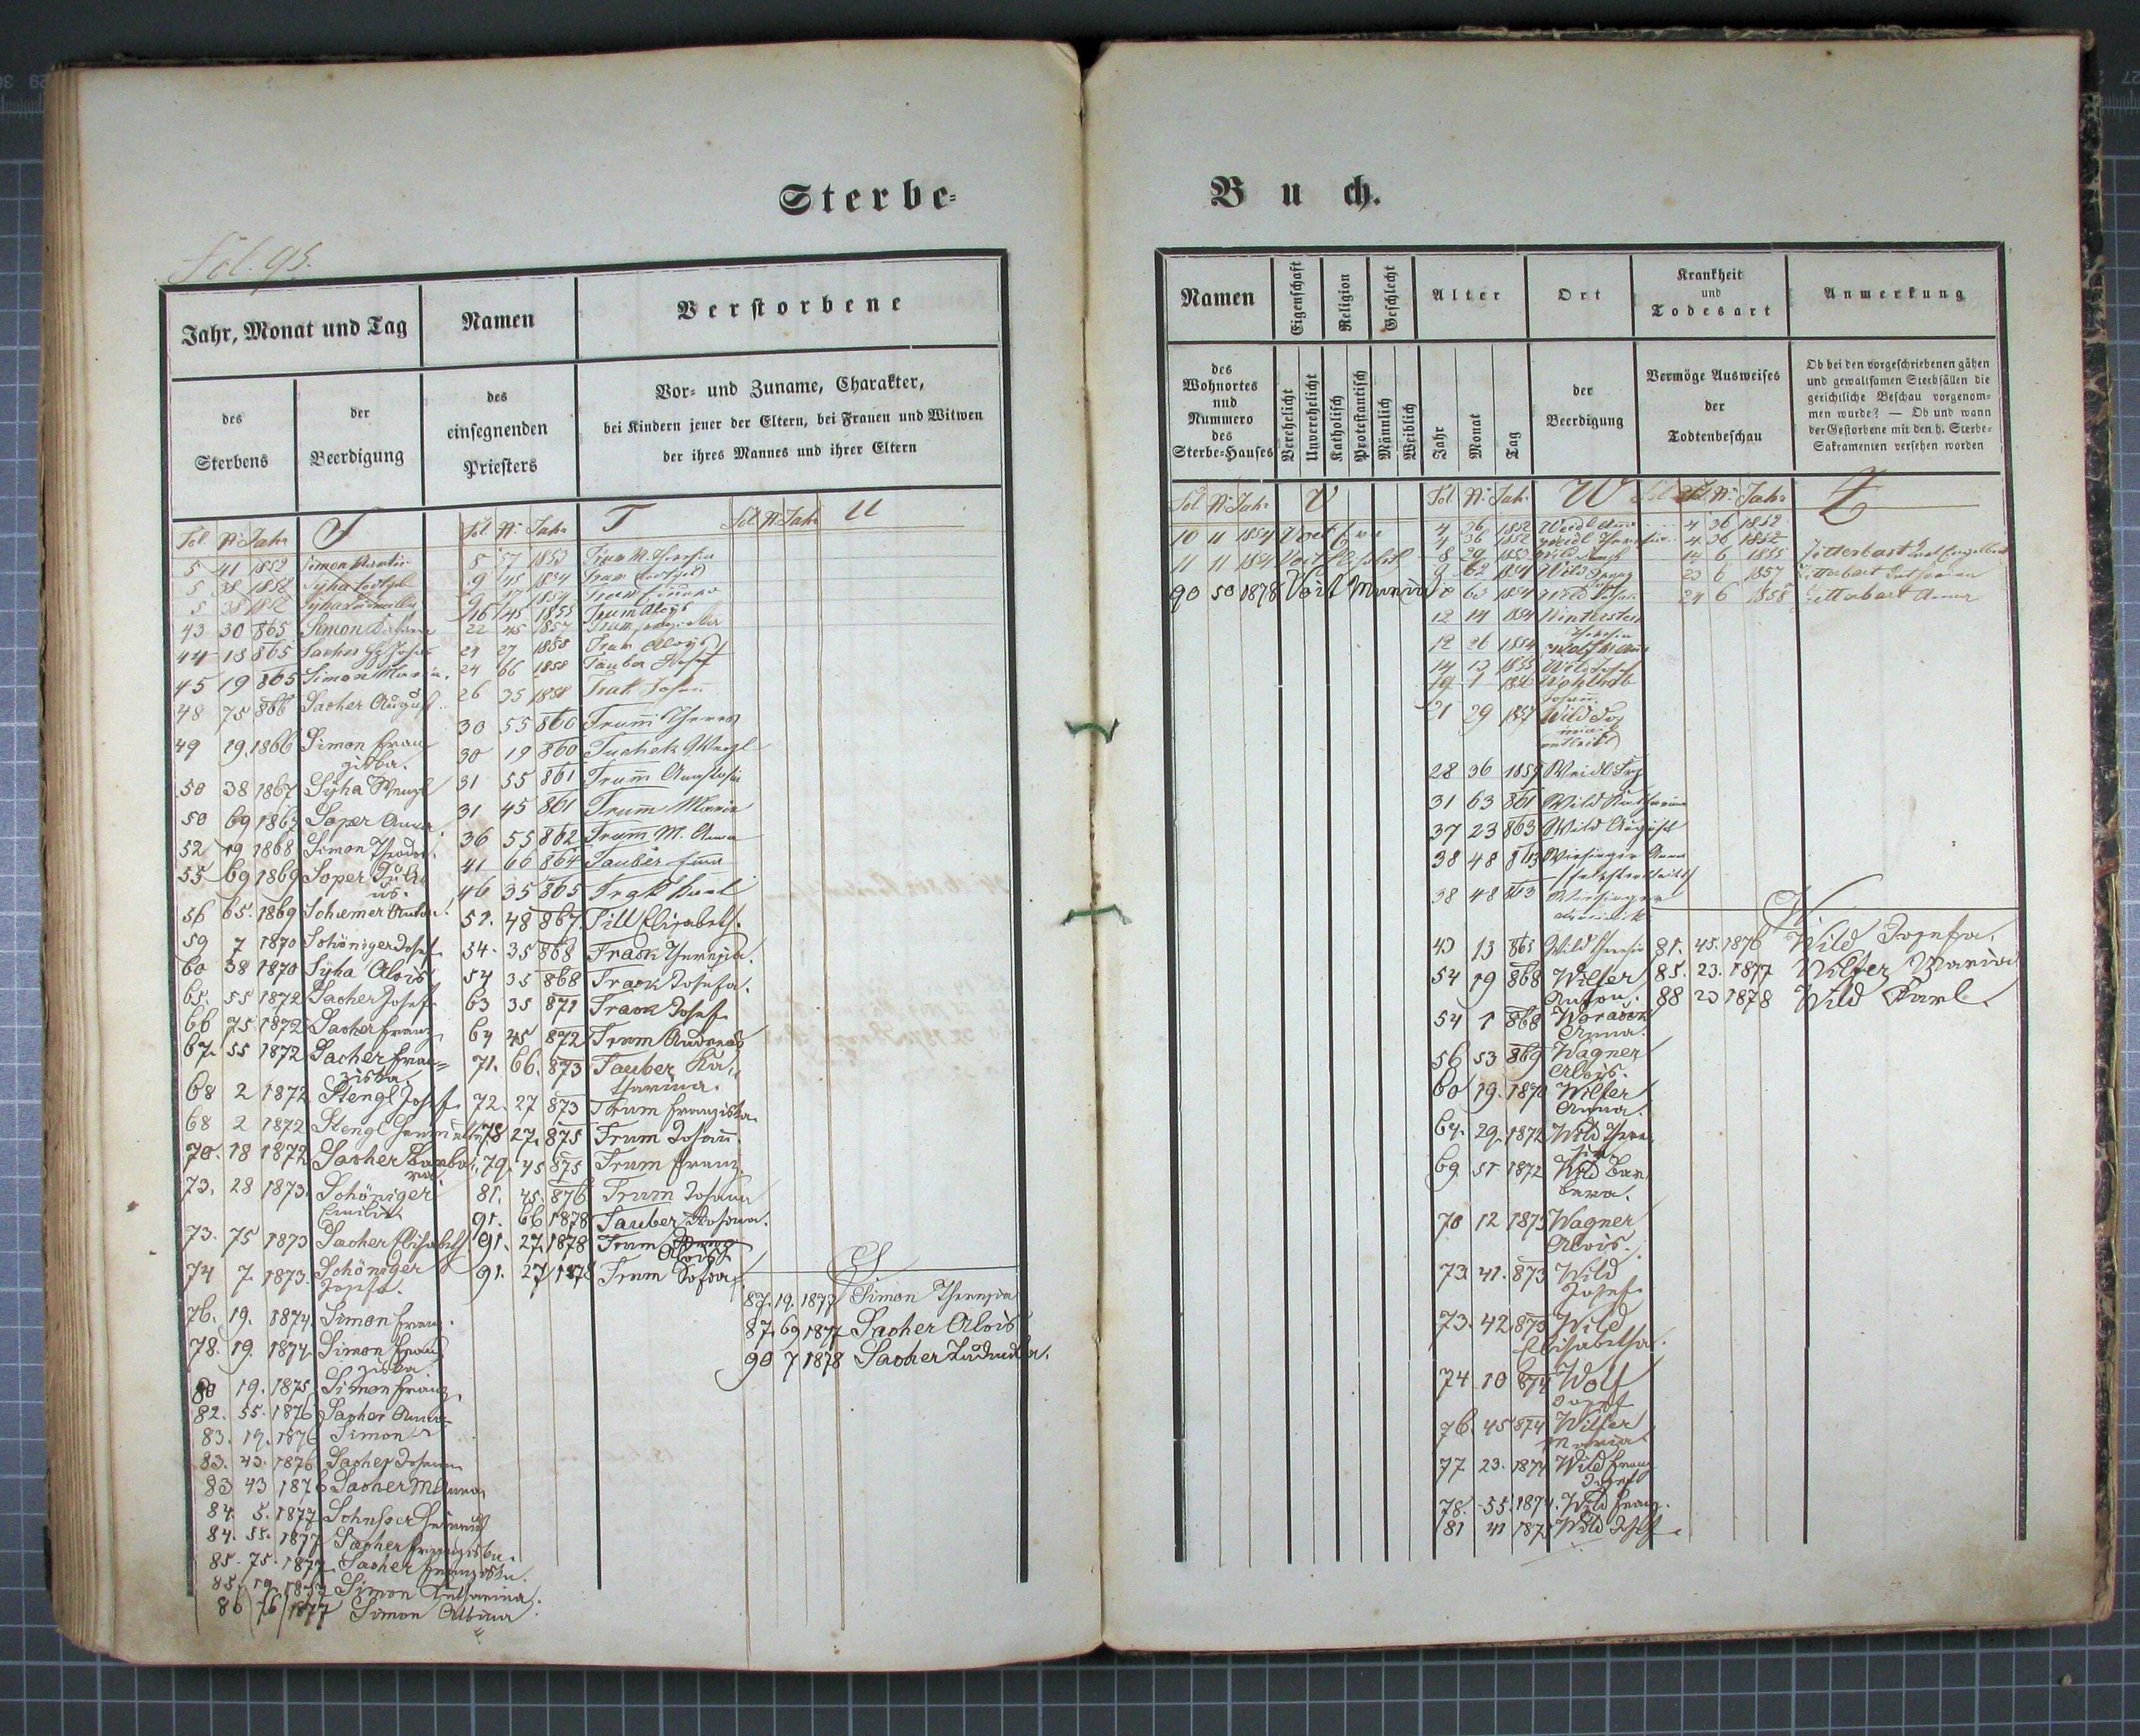 Sterbe-
Fol. 95.
Jahr, Monat und Tag
Namen
Verstorbene
des
Sterbens
der
Beerdigung
des
einsegnenden
Priesters
Vor- und Zuname, Charakter,
bei Kindern jener der Eltern, bei Frauen und Witwen
der ihres Mannes und ihrer Eltern
Fol. N: Jahr S
5 41 1852 Simon
5 38 1852 Syha
5 38 1852 Syha
43 30 865 Simon
44 13 865 Sacher
45 19 865 Simon Maria.
48 75 866 Sacher August.
49 19. 1866 Simon Fran
ziska.
50 38 1867 Syha Wenzl
50 69 1867 Soper Anna.
52 19 1868 Simon Theodor.
55 69 1869 Soper Juli
us.
56 65. 1869 Schiemer Anton.
59 7 1870 Schöniger Josef
60 38 1870 Syha Alois
65. 55 1872 Sacher Josef
66 75 1872 Sacher Franz
67. 55 1872 Sacher Fran=
ziska
68 2 1872 Stengl Josef.
68 2 1872 Stengl
70. 18 1872 Sacher Barba
ra
73. 28 1873. Schöniger
Emilie
73. 75 1873 Sacher Elisabeth
74 7. 1873. Schöniger
Josefa.
76. 19. 1874. Simon Franz.
78. 19 1874 Simon Fran
ziska
80 19. 1875 Simon Franz.
82. 55. 1876 Sacher Anna
83. 19. 1876 Simon
83. 43. 1876 Sacher Johann
83 43 1876 Sacher M Anna
84. 5. 1877
84. 55. 1877 Sacher Franziska.
85. 75. 1877. Sacher Franziska.
85. 19. 1877 Simon Katharina.
86 76 1877 Simon Albina
Fol. N: Jahr T
5 57 1853 Trum M. Theresia
9 45 1854 Trum
9 17 1854
16 45 1855 Trum Aloys
22 45 1857 Trum
24 27 1858 Trum Aloys
24 66 1858 Tauber Josef
26 35 1858 Trak Johann
30 55 860 Trum̄ Theres
30 19 860 Tuchek Wenzl
31 55 861 Trum̄ Anastasia
31 45 861 Trum̄ Maria
36 55 862 Trum̄ M. Anna
41 66 864 Tauber
46 35 865 Trak Karl
51. 48 867. Till Elisabeth.
54. 35 868 Track Theresia.
54 35 868 Track Josefa.
63 35 871 Track Josef
64 45 872 Trum Andreas
71. 66. 873 Tauber Ka
tharina.
72. 27 873 Trum Franziska
78 27. 875 Trum Johann.
79. 45 875 Trum Franz.
81. 45. 876 Trum Johann
91. 66 1878 Tauber Johann.
91. 27. 1878 Trum
Aloisi
91. 27 1878 Trum
Fol N: Jahr U
S
87. 19. 1877 Simon Theresia
87. 69 1877 Sacher Alois
90 7 1878 Sacher Ludmila.
Buch.
Namen
Eigenschaft
Religion
Geschlecht
Alter
Ort
Krankheit
und
Todesart
Anmerkung
des
Wohnortes
und
Nummero
des
Sterbe-Hauses
Verehelicht
Unverehelicht
Katholisch
Protestantisch
Männlich
Weiblich
Jahr
Monat
Tag
der
Beerdigung
Vermöge Ausweises
der
Todtenbeschau
Ob bei den vorgeschriebenen gähen
und gewaltsamen Sterbfällen die
gerichtliche Beschau vorgenom-
men wurde? — Ob und wann
der Gestorbene mit den h. Sterbe-
Sakramenten versehen worden
Fol N: Jahr V
10 11 1854 Voit
11 11 1854 Voit
90 50 1878 Voit Maria
Fol N: Jahr W
4 36 1852 Weidl Anna
4 36 1852 Weidl Theresia
8 29 1853 Wild
9 62 1854 Wild
10 63 1854 Wild
12 14 1854 Winterstein
Theresia
12 26 1854 Wolf M. Anna
14 13 1855 Wild Josef
19 1 1856 Wohlrab
Johann
21 29 1857 Wild Jos
28 36 1859 Weidl Frz
31 63 861 Wild Katharina
37 23 863 Wild August
38 48 863 Wiesinger Anna
38 48 863 Wiesinger
43 13 865 Wild Theresia
54 19 868 Wilfer
Anton.
54 1 868
Anna.
56 53 869 Wagner
Alois.
60 19. 1870 Wilfer
Anna.
64. 29. 1872 Wild There
sia
69. 51 1872 Wild Bar
bara.
70 12 1873 Wagner
Alois.
73. 41. 873 Wild
Josef
73. 42 873 Wild
Elisabetha.
74 10 874 Wolf
Josef
76. 45 874 Wilfer
Maria
77 23. 1874 Wild Franz
Josef
78. 55. 1874. Wild Franz.
81 41 1875 Wild Josef.
Fol N: Jahr Z
4 36 1852
4 36 1852
14 6 1855 Zitterbart
23 6 1857 Zitterbart Katharina
24 6 1858 Zitterbart Anna
W
81. 45. 1876 Wild Josefa.
85. 23. 1877 Wilfer Maria
88 23 1878 Wild Karl.